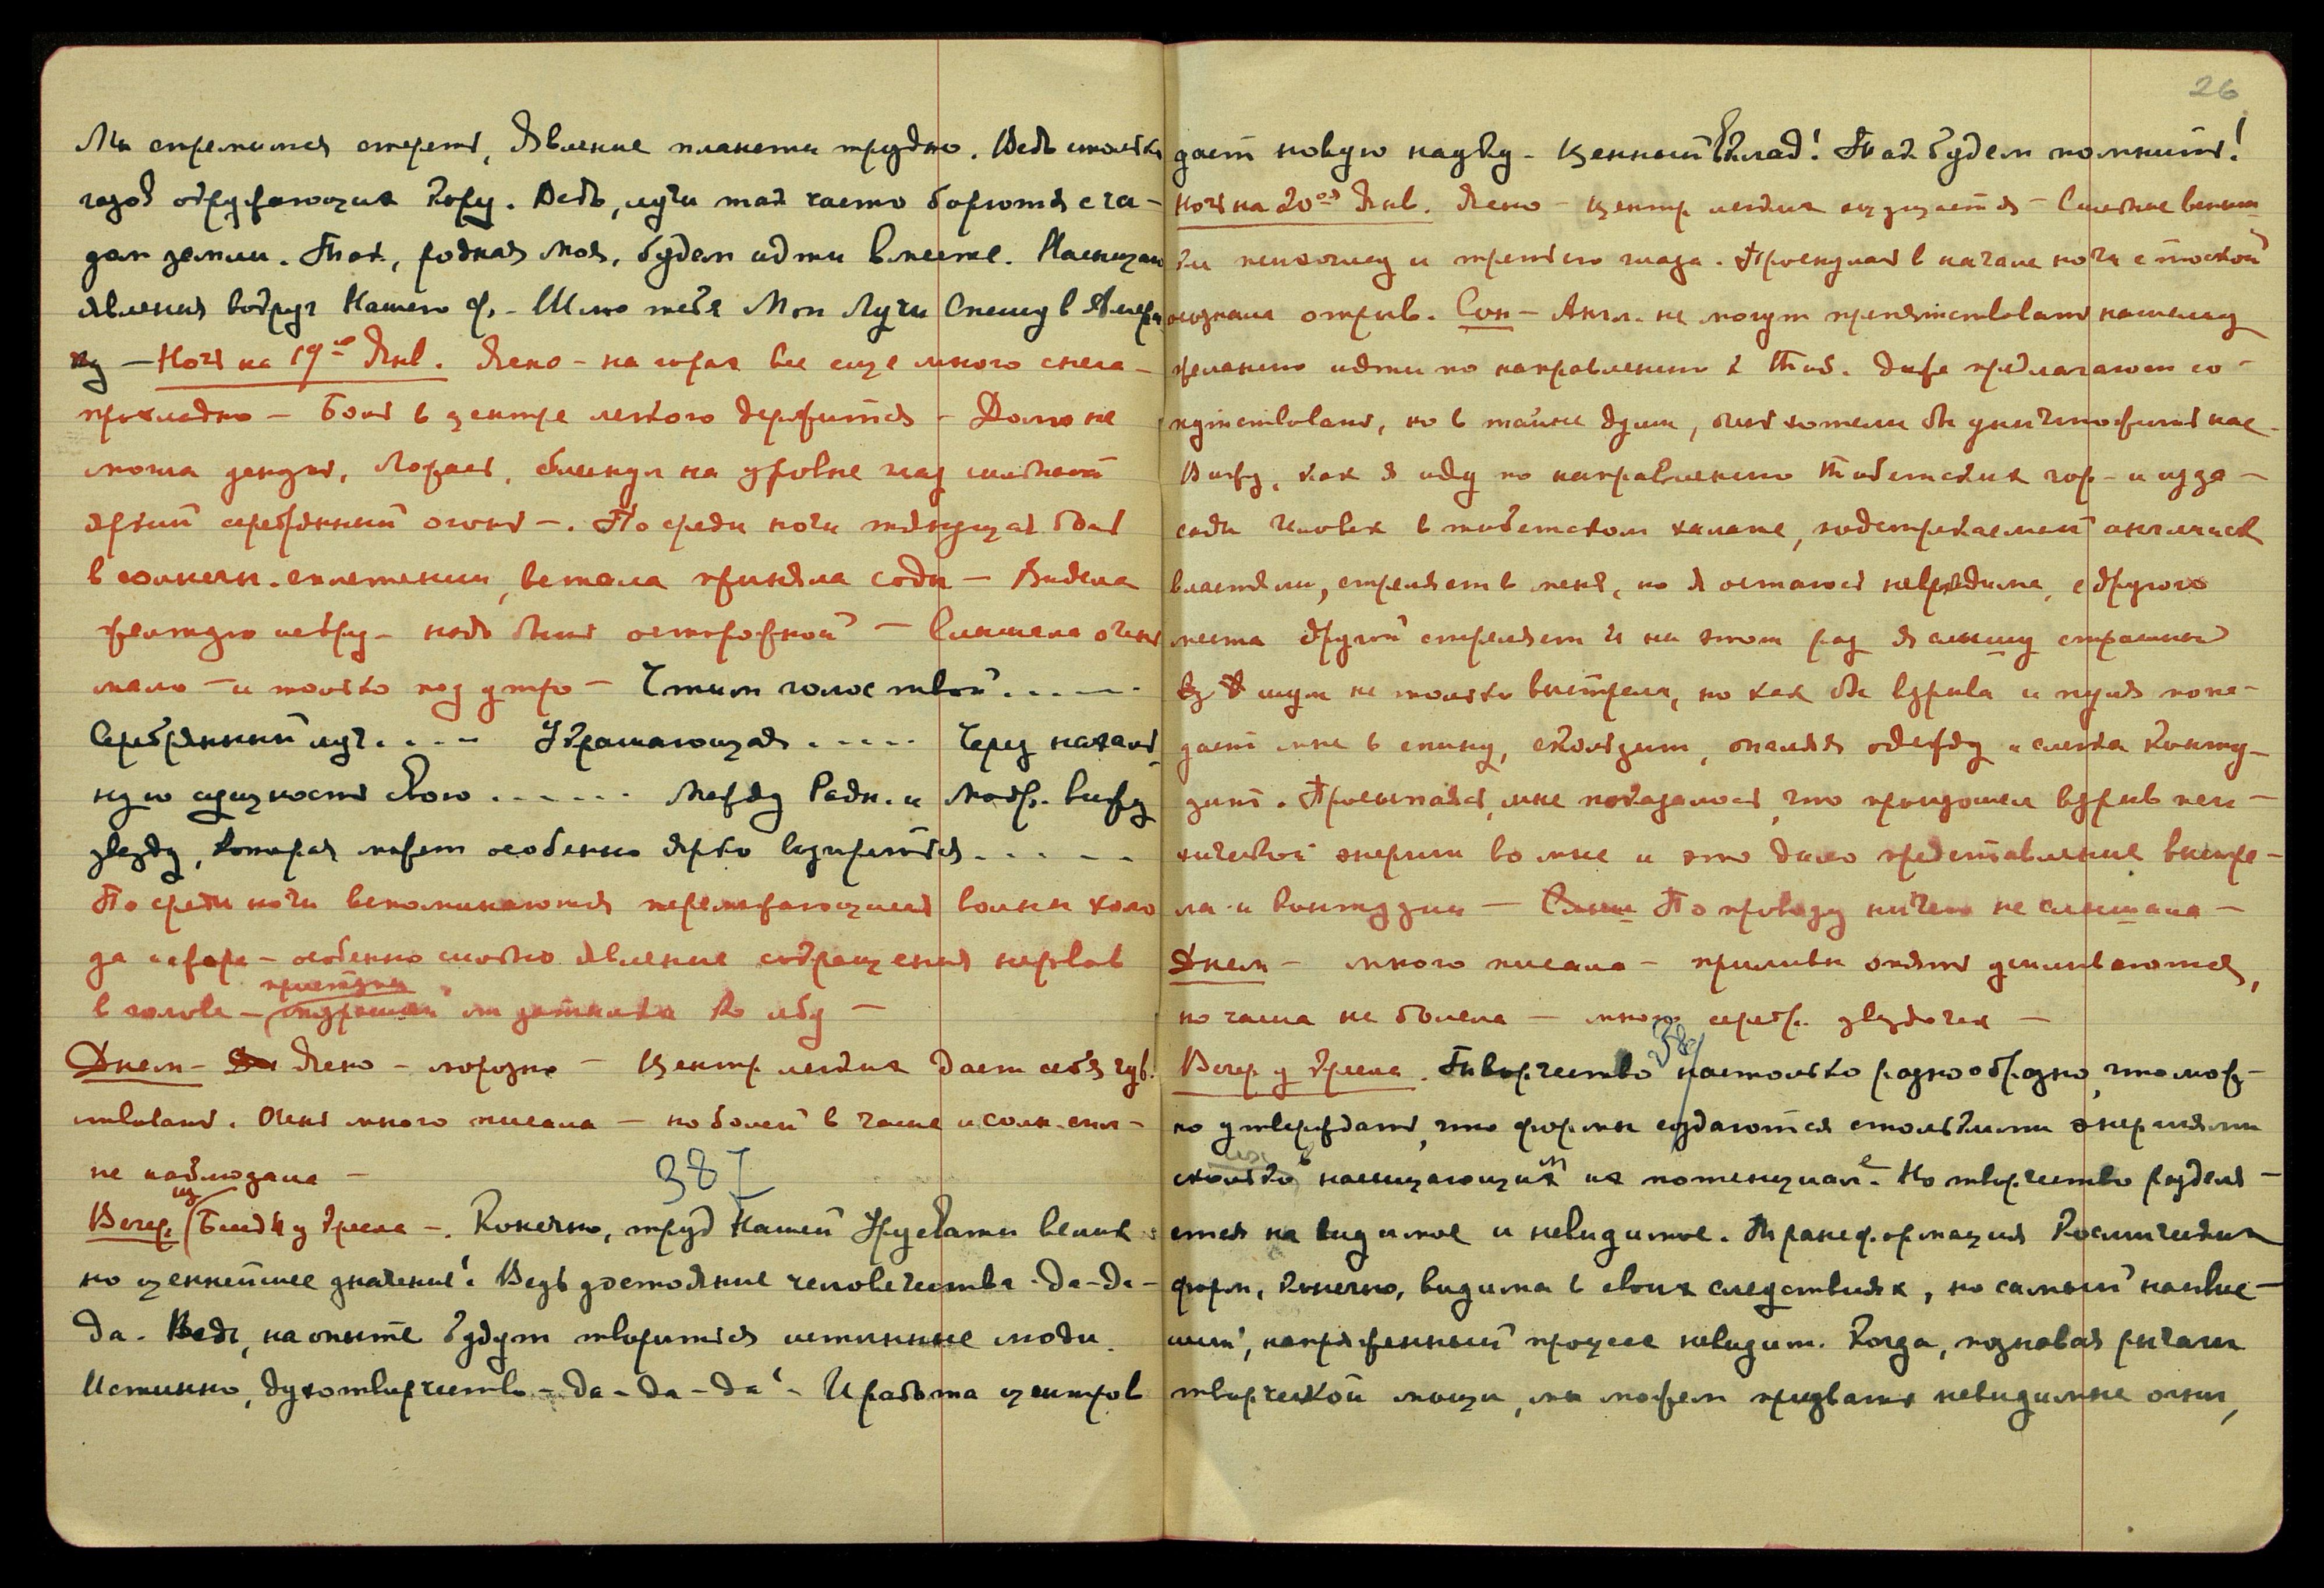 Мы стремимся стереть, Явление планеты трудно. Ведь столько
газов окружающих кору. Ведь, лучи так часто борются с га-
зами земли. Так, родная моя, будем идти вместе. Насыщаю
явления вокруг Нашего ф. – Шлю тебе Мои Лучи Спешу в Амери
ку – Ночь на 19ое Янв. Ясно – на горах все еще много снега –
прохладно – Боль в центре легкого держится – Долго не
могла уснуть, Лорась, блеснул на уровне глаз
яркий серебрянный огонь –. По среди ночи тянущая боль
в солнечн. сплетении, встала приняла соды – Видела
желтую искру – надо быть осторожной – Слышала очень
мало – и только под утро – Чтим голос твой . . . . .
Серебрянный луч . . . . Украшающая . . . . . Через началь
ную сущность свою . . . . . . Между Радн. и Людм. вижу
звезду, которая может особенно ярко возгореться . . . . .
По среди ночи вспоминаются перемежающиеся волны холо
да и жара – особенно сильно явление сокращения нервов
в голове – приступы от затылка ко лбу –
Днем – Ясно – морозно – Центр легких дает себя чув.
ствовать. Очень много писала – но болей в чаше и солн. спл –
не наблюдала – 387
Вечер. из (Бесед у Кресла –. Конечно, труд Нашей Урусвати велик
но ценнейшее значение! Ведь достояние человечества – да-да-
да. Ведь, на опыте будут твориться истинные люди.
Истинно, духотворчество – да-да-да! – И работа центров
26
дает новую науку – ценный вклад! Так будем помнить!
Ночь на 20ое Янв. Ясно – центр легких ощущается – Сильные вспыш
ки и третьего глаза. Проснулась в начале ночи с тоской
отрыв. Сон – Англ. не могут препятствовать нашему
желанию идти по направлению к Тиб. Даже предлагают со-
путствовать, но в тайне души, очень хотели бы уничтожить нас.
Вижу, как я иду по направлению Тибетских гор – и из за –
сады человек в тибетском халате, подстрекаемый английск
властями, стреляет в меня, но я остаюсь невредима, с другого
места другой стреляет и на этот раз я слышу страшный
шум не только выстрела, но как бы взрыва и пуля попа-
дает мне в спину, скользит, опаляя одежду и слегка конту-
зит. Просыпаясь, мне показалось, что произошел взрыв пси –
хической энергии во мне и это дало представление выстре-
ла и контузии – По проводу ничего не слышала –
Днем – много писала – приливы опять усиливаются,
но чаша не болела – много серебр. звездочек –
389
Вечер у Кресла. Творчество настолько разнообразно, что мож-
но утверждать, что формы создаются столькими энергиями
сколько в насыщающих их потенциале. Но творчество разделя –
ется на видимое и невидимое. Трансформация Космических
форм, конечно, видима в своих следствиях, но самый наивыс –
ший, напряженный процесс невидим. Когда, познавая рычаги
творческой мощи, мы можем призвать невидимые огни,